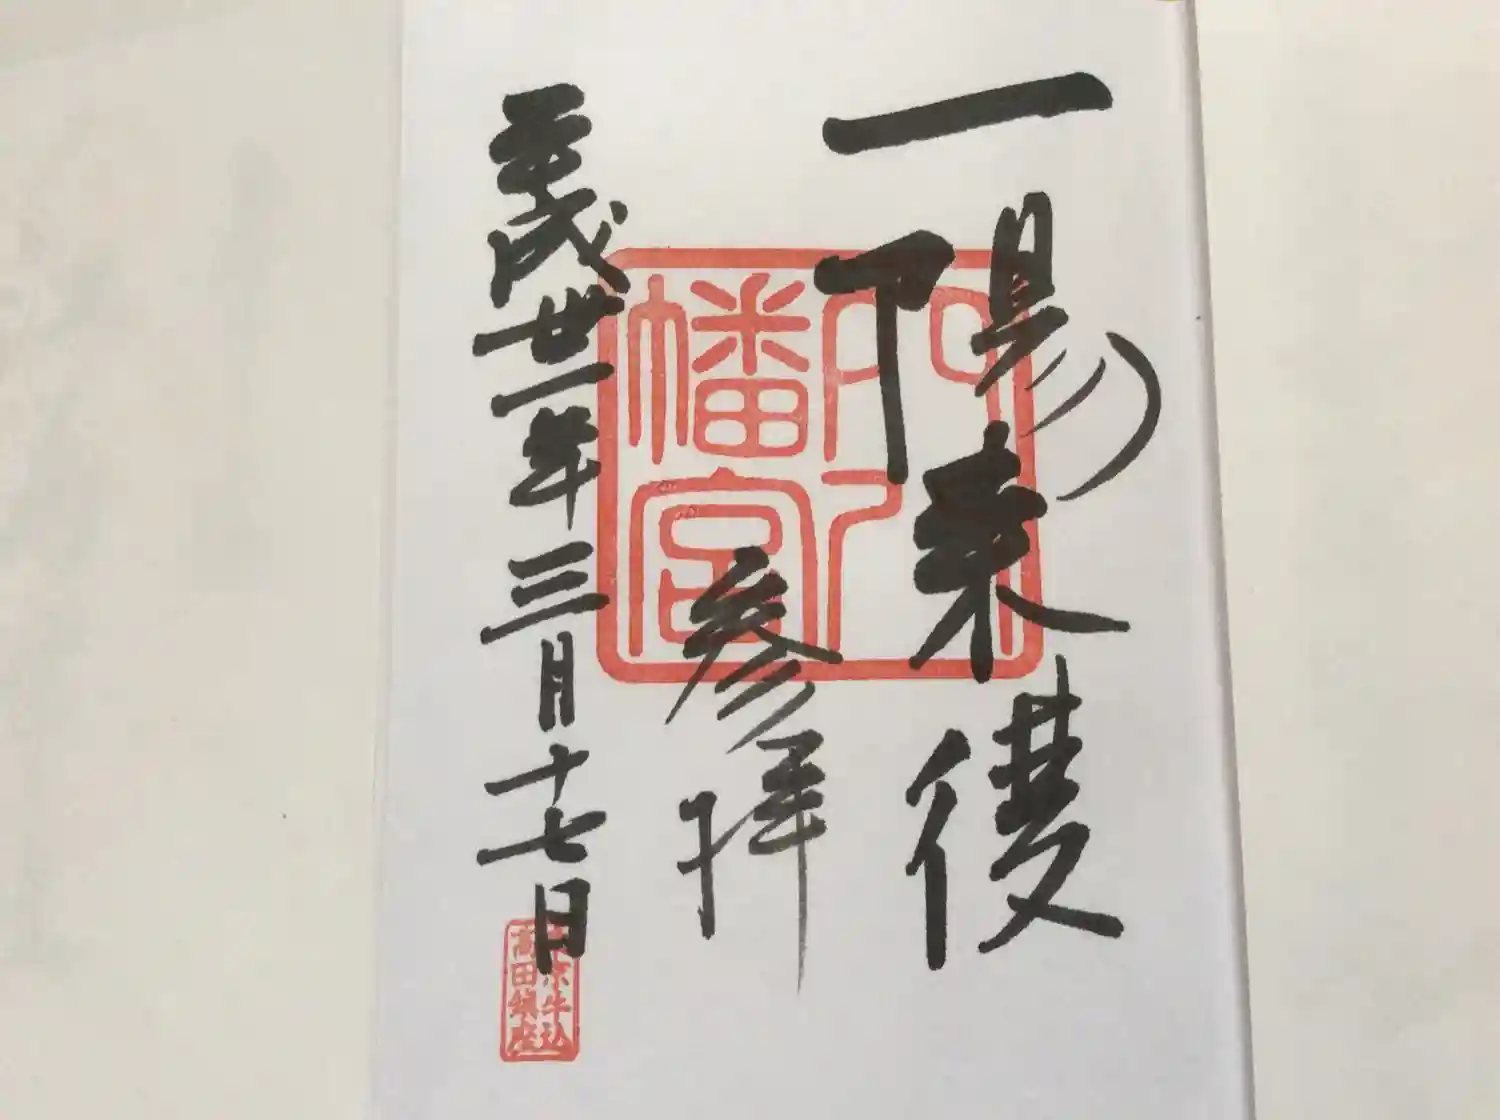 一陽来復
参拝
平成丗一年三月十七日
穴八
幡宮
東京牛込
高田鎮座